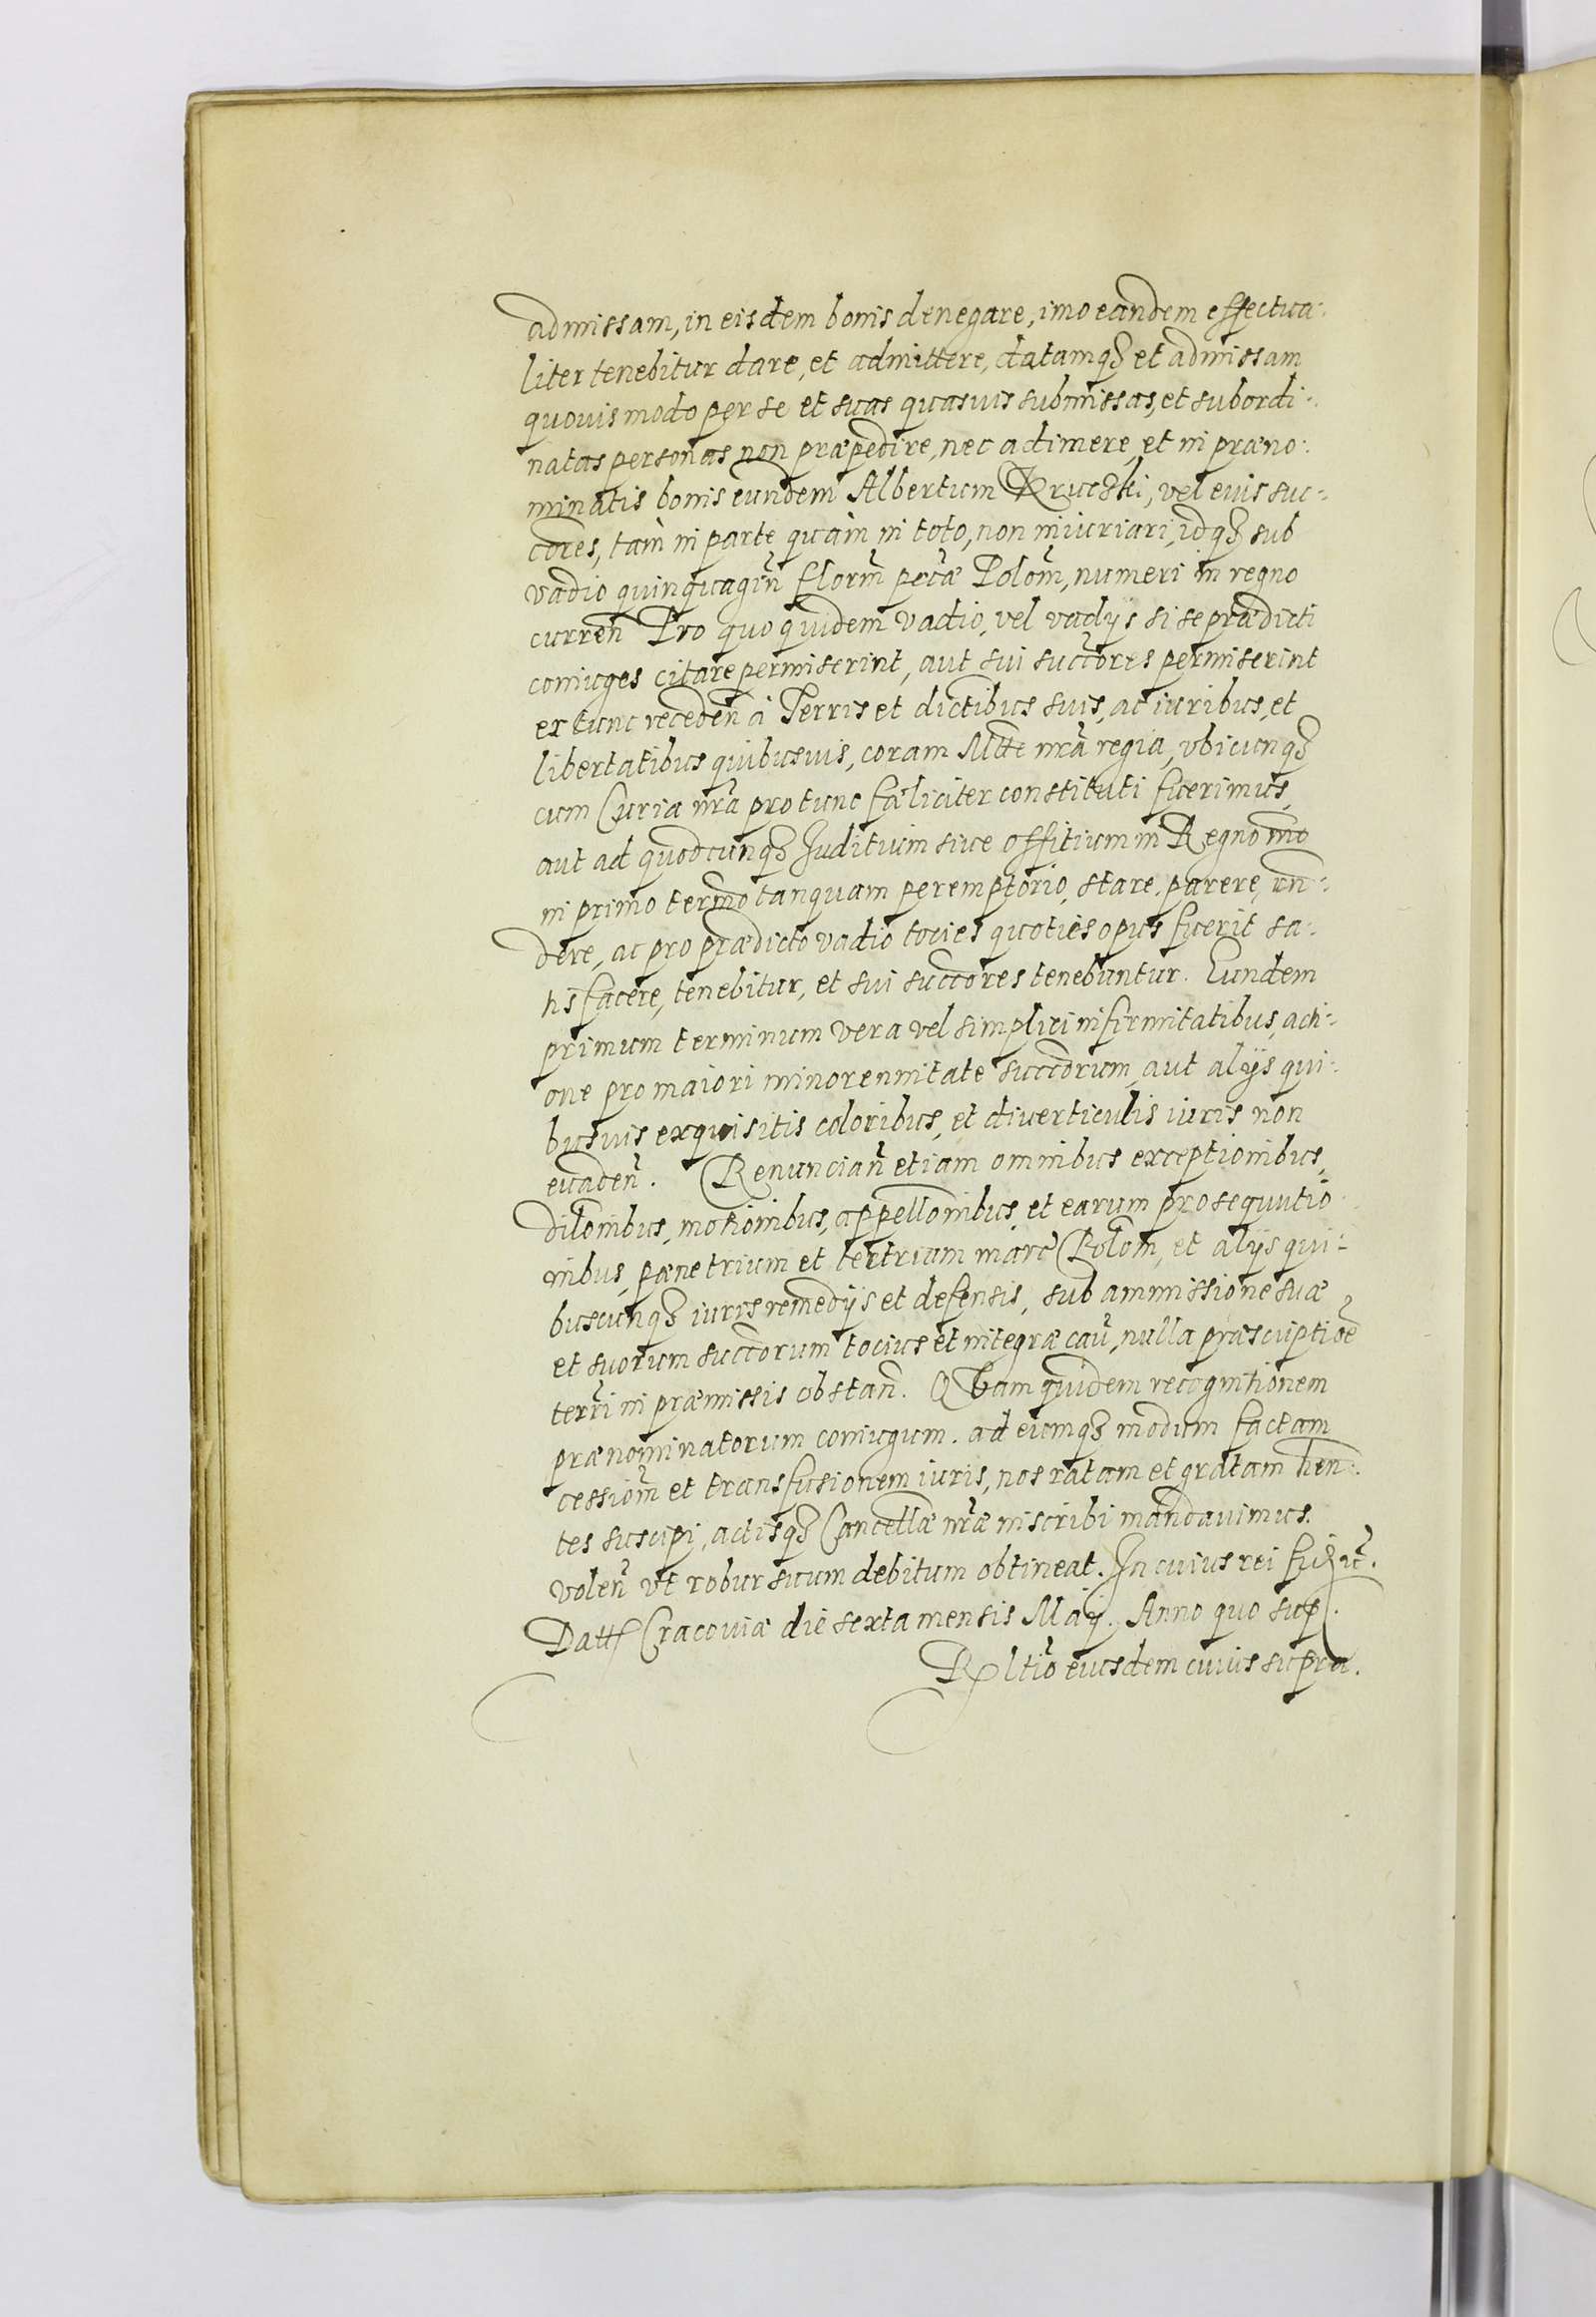 admissam, in eisdem bonis denegare, imo eandem effectua:
liter tenebitur dare, et admittere, datamqꝫ et admissam
quouis modo per se et suas quasuis submissas, et subordi:
natas personas non præpedire, nec adimere, et in præno:
minatis bonis eundem Albertum Kruczki, vel euis suc:
cores, tam in parte quàm in toto, non iniuriari, idqꝫ sub
vadio quinquagiñ florm̃ pecæ̃ Polom̃, numeri in regno
curreñ Pro quo quidem vadio, vel vadijs si se prædicti
coniuges citare permiserint, aut sui succores permiserint
ex tunc recedeñ à Terris et dictibus suis, ac iuribus, et
libertatibus quibusuis, coram Mtte nrã regia, vbicunqꝫ
cum Curia nrã pro tunc fæliciter constituti fuerimus,
aut ad quodcunqꝫ Juditium siue offitium in Regno nr̃o
in primo termo tanquam peremptorio, stare, parere, rñ:
dere, ac pro prædicto vadio tocies quoties opus fuerit sa:
tis facere, tenebitur, et sui succores tenebuntur. Eundem
primum terminum vera vel simplici infirmitatibus, acti:
one pro maiori minorennitate succorum, aut alijs qui:
busuis exquisitis coloribus, et diuerticulis iuris non
euadeñ. Renunciañ etiam omnibus exceptionibus,
dilonibus, motionibus, appellonibus, et earum prosequutio
nibus, pæne trium et ter trium marc̃ Polom̃, et alijs qui:
buscunqꝫ iuris remedijs et defensis, sub ammissione suæ
et suorum succorum tocius et integræ cau, nulla præscriptioẽ
terri in præmissis obstañ. Quam quidem recognitionem
prænominatorum coniugum. ad eumqꝫ modum factam
cessiom̃ et transfusionem iuris, nos ratam et gratam heñ:
tes suscipi, actisqꝫ Cancellæ nrã̃e inscribi mandauimus.
voleñ vt robur suum debitum obtineat. In cuius rei fid. etc̃.
Datt Cracouiæ die sexta mensis Maij. Anno quo sup.
Rltiõ eiusdem cuius supra.